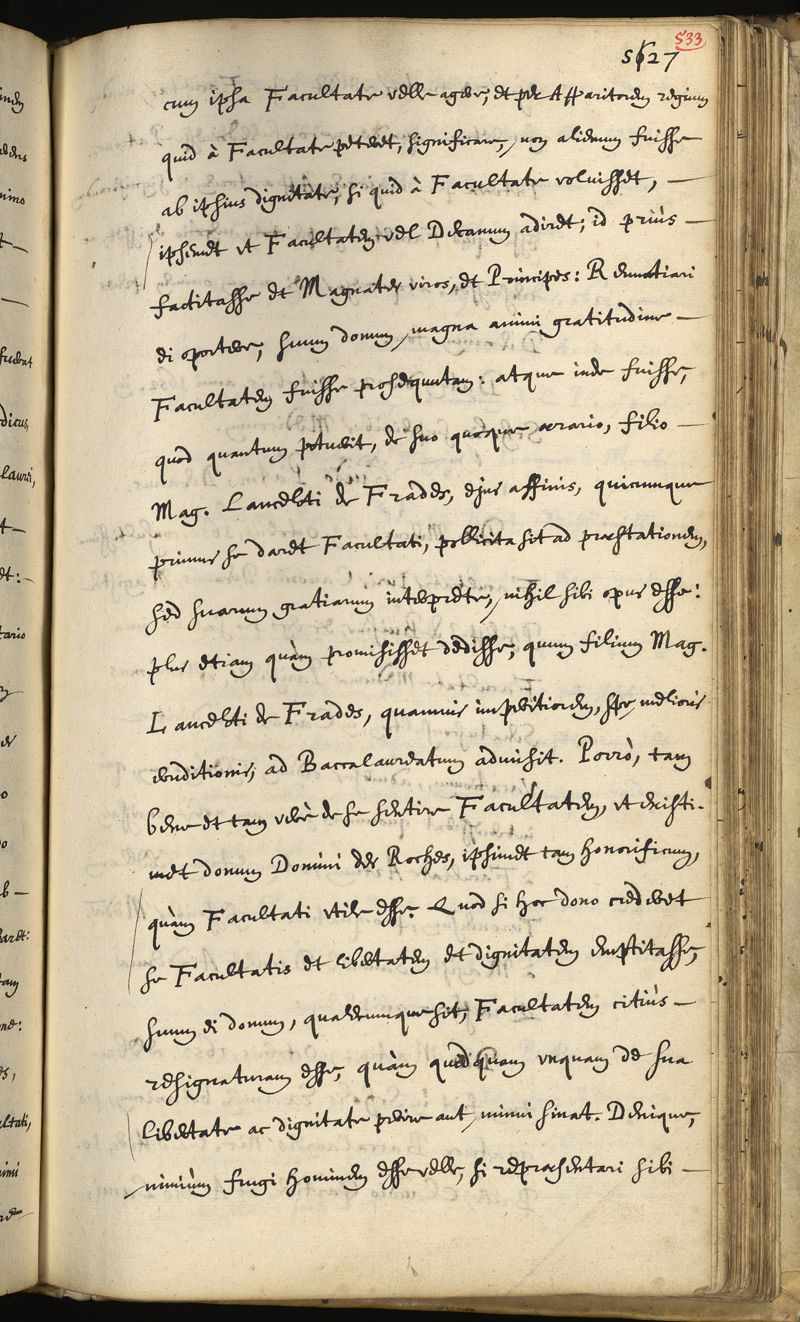 533
5627
cum ipsa Facultate velle agere, et per Apparitorem regium
quid à Facultate peteret, significare, non alienum fuisse
ab ipsius dignitate, si quid à Facultate voluisset, —
ipsemet ut Facultatem vel Decanum adiret; id priùs —
factitasse et Magnates viros, et Principes: Renuntiari
ei oportere, suum donum magna animi gratitudine —
Facultatem fuisse prosequutam: atque inde fuisse,
quòd quantum potuerit, de suo quoque ærario, filio —
Mag. Lanceloti de Frades, ejus affinis, quicumque
primus se daret Facultati, pollicita sit ad præstationem,
sed suarum gratiarum interprete, nihil sibi opus esse:
plus etiam quàm promisisset dedisse, quum filium Mag.
Lanceloti de Frades, quamvis imperitiorem, spe melioris
conditionis, ad Baccalaureatum admisit. Porrò, tam
bene et tam verè de se sentire Facultatem, ut existi-
met donum Domini des Roches, ipsimet tam honorificum,
quàm Facultati utile esse. Quod si hoc dono crederet
se Facultatis et libertatem et dignitatem emptitasse,
suum ei donum, qualecumque sit, Facultatem citiùs —
resignaturam esse, quàm quidquam unquam de sua
libertate ac dignitate perire aut minui sinat. Denique,
nimiùm frugi hominem esse velle, si repræsentari sibi —